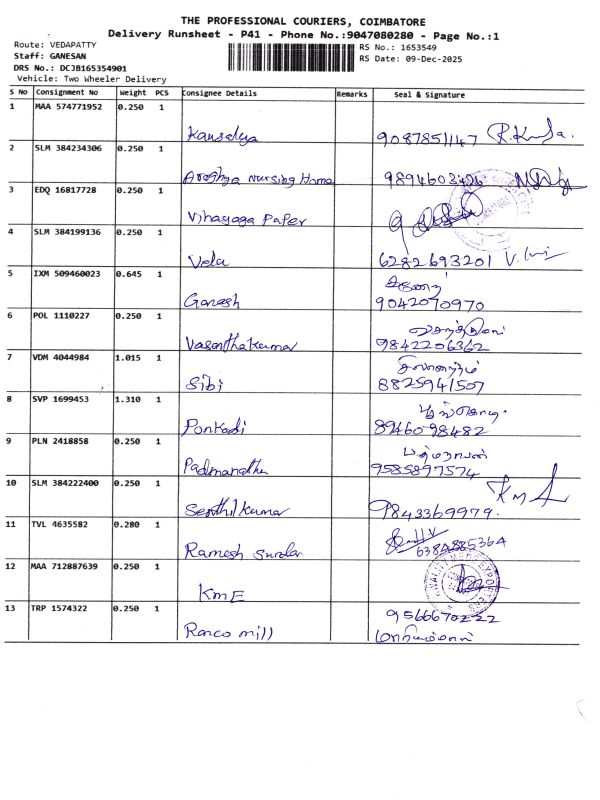 THE PROFESSIONAL COURIERS, COIMBATORE
Delivery Runsheet - P41 - Phone No.:9047080280 - Page No.:1
Route: VEDAPATTY
RS No.: 1653549
Staff: GANESAN
RS Date: 09-Dec-2025
DRS No.: DCJB165354901
Vehicle: Two Wheeler Delivery
S No Consignment No Weight PCS Consignee Details Remarks Seal & Signature
1 MAA 574771952 0.250 1
Kausalya 9087851147
2 SLM 384234306 0.250 1
Arogya Nursing Home 9894603426
3 EDQ 16817728 0.250 1
Vinayaga Paper
4 SLM 384199136 0.250 1
Velu 6282693201
5 IXM 509460023 0.645 1
Ganesh 9042070970
6 POL 1110227 0.250 1
Vasanthakumar 9842206362
7 VDM 4044984 1.015 1
Sibi 8825941507
8 SVP 1699453 1.310 1
Ponkodi 8946098482
9 PLN 2418858 0.250 1
Padmanatha 9585897574
10 SLM 384222400 0.250 1
Senthil kumar 9843369979.
11 TVL 4635582 0.280 1
Ramesh Sundar
12 MAA 712887639 0.250 1
KME
13 TRP 1574322 0.250 1
9566670222
Ranco mill